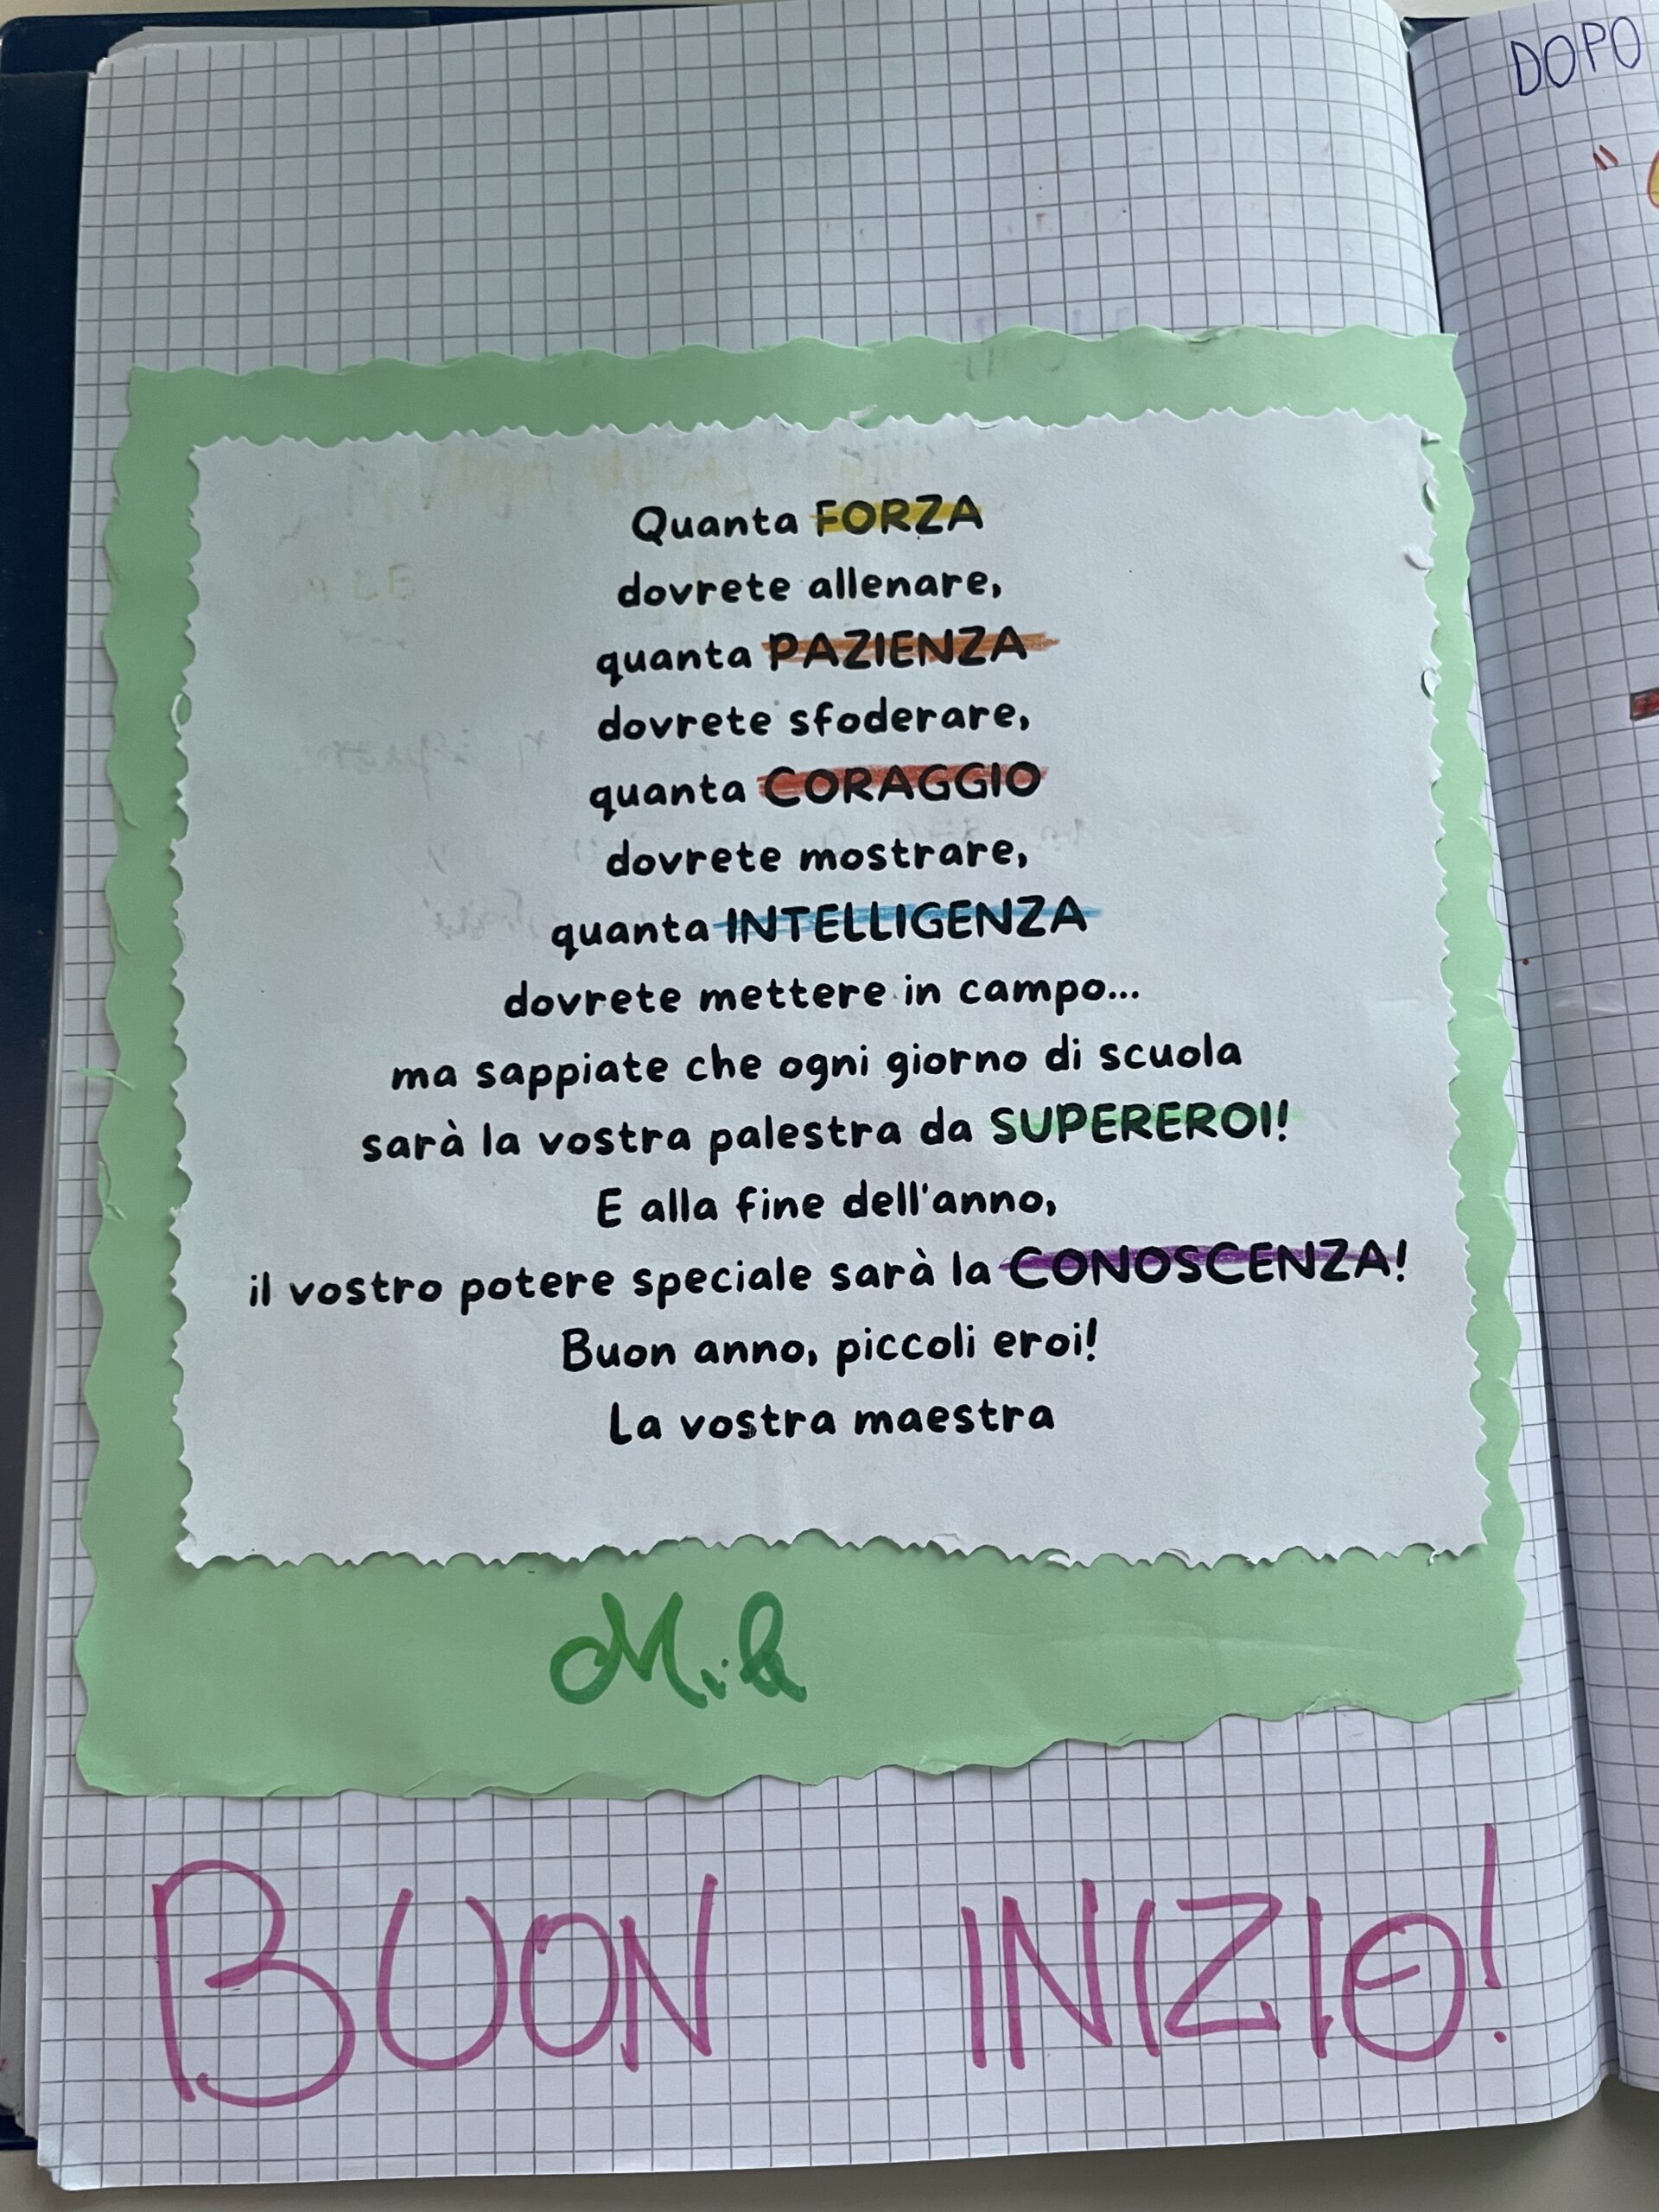 Quanta FORZA
dovrete allenare,
quanta PAZIENZA
dovrete sfoderare,
quanta CORAGGIO
dovrete mostrare,
quanta INTELLIGENZA
dovrete mettere in campo...
ma sappiate che ogni giorno di scuola
sarà la vostra palestra da SUPEREROI!
E alla fine dell'anno,
il vostro potere speciale sarà la CONOSCENZA!
Buon anno, piccoli eroi!
La vostra maestra
BUON INIZIO!
DOPO